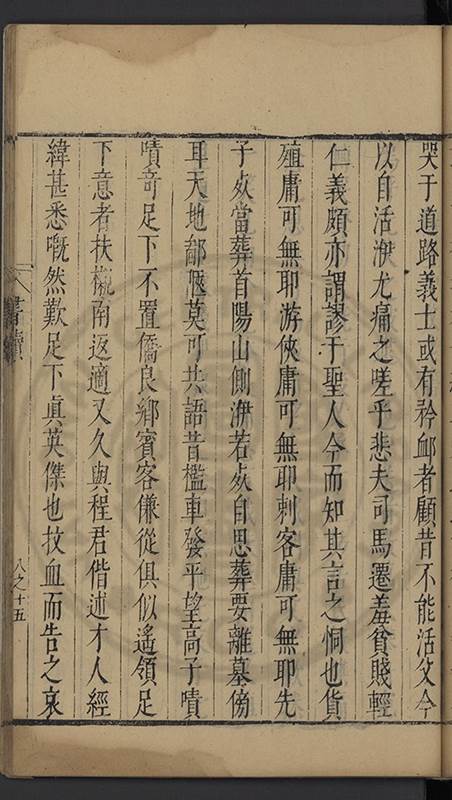 哭于道路義士或有矜卹者顧昔不能活父今
以自活洢尤痛之嗟乎悲夫司馬遷羞貧賤輕
仁義頗亦謂謬于聖人今而知其言之恫也貨
殖庸可無耶游俠庸可無耶刺客庸可無耶先
子䖏當葬首陽山側洢若䖏自思葬要離墓傍
耳天地鄙偃莫可共語昔檻車發平望高子嘖
嘖奇足下不置僑良鄉賓客傔從俱似遙領足
下意者扶櫬南返適又久與程君偕述才人經
緯甚悉嘅然歎足下眞英傑也抆血而告之哀
書牘
八之十五